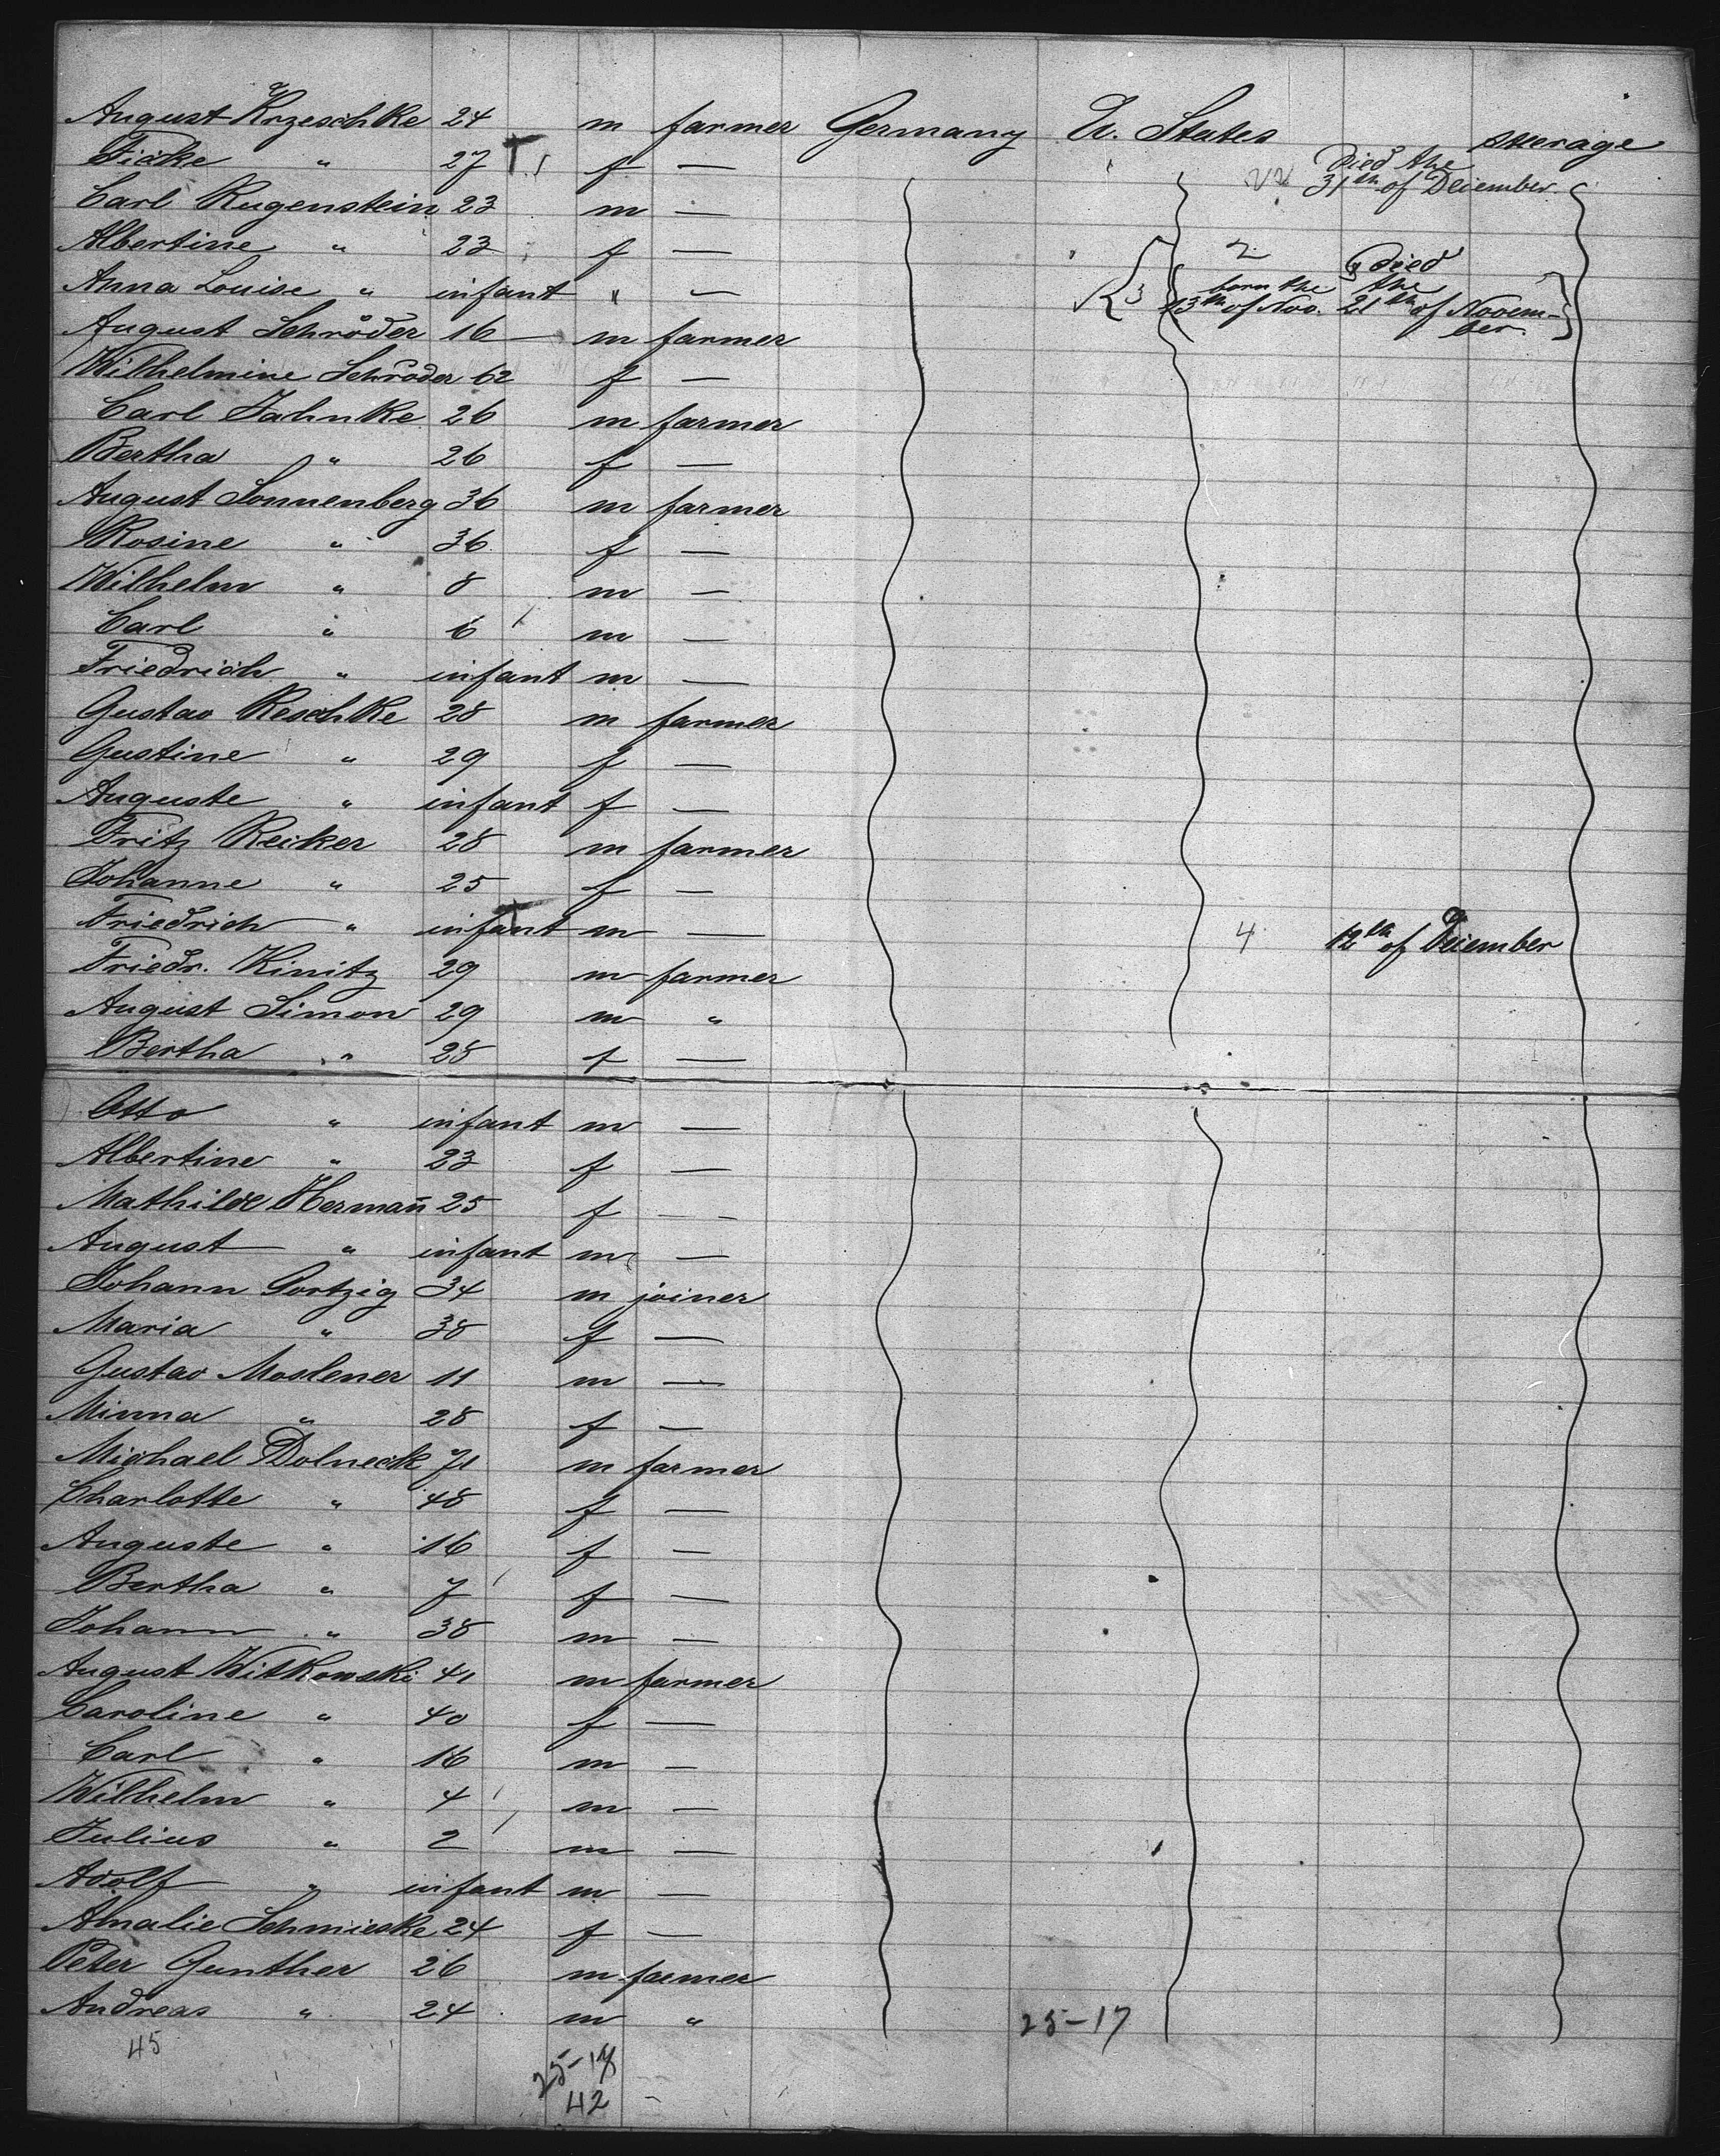 August Krzeschke 24 m farmer Germany U. States steerage
Ficke " 27 f — died the 31th of December
Carl Rugenstein 23 m —
Albertine " 23 f —
Anna Louise " infant " — 3 born the 13th of Nov. 2 died the 21th of November
August Schröder 16 — m farmer
Wilhelmine Schröder 62 f —
Carl Jahnke 26 m farmer
Bertha " 26 f —
August Sonnenberg 36 m farmer
Rosine " 36 f —
Wilhelm " 8 m —
Carl " 6 m —
Friedrich " infant m —
Gustav Reschke 28 m farmer
Gustine " 29 f —
Auguste " infant f —
Fritz Recker 28 m farmer
Johanne " 25 f —
Friedrich " infant m — 4 12th of December
Friedr. Kinitz 29 m farmer
August Simon 29 m "
Bertha " 28 f —
Otto " infant m —
Albertine " 23 f —
Mathilde Herman̄ 25 f —
August " infant m —
Johann Gortzig 34 m joiner
Maria " 38 f —
Gustav Moslener 11 m —
Minna " 28 f —
Michael Dolneck 71 m farmer
Charlotte " 48 f —
Auguste " 16 f —
Bertha " 7 f —
Johann " 38 m —
August Witkowski 41 m farmer
Caroline " 40 f —
Carl " 16 m —
Wilhelm " 4 m —
Julius " 2 m —
Adolf " infant m —
Amalie Schmieske 24 f —
Peter Gunther 26 m farmer
Andreas " 24 m " 25-17
45
25-17
42